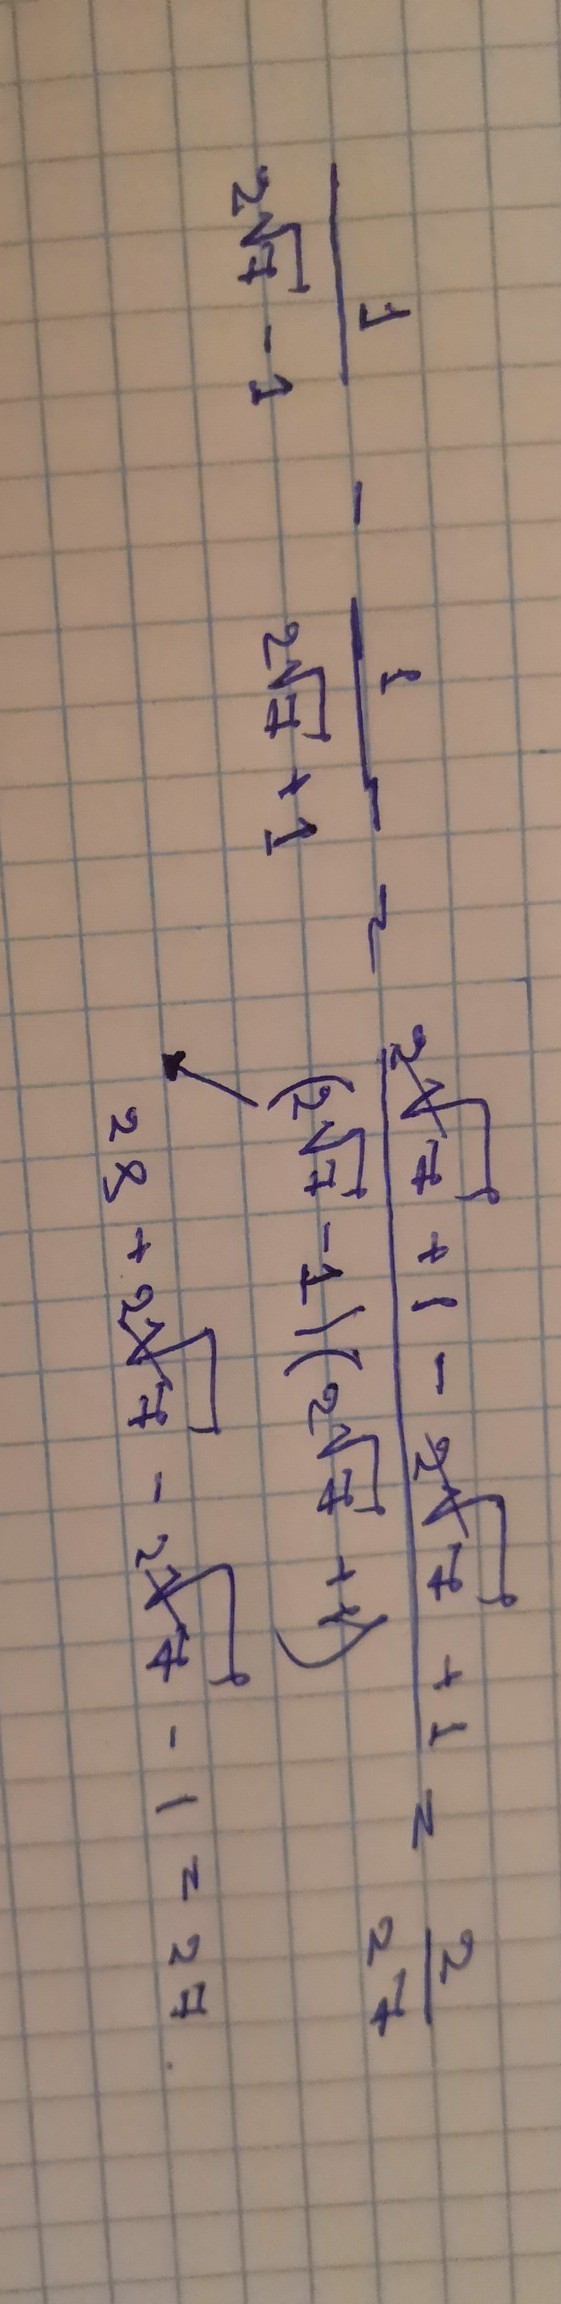 1/(2√7 - 1) - 1/(2√7 + 1) = (2√7 + 1 - 2√7 + 1)/((2√7 - 1)(2√7 + 1)) = 2/27
28 + 2√7 - 2√7 - 1 = 27